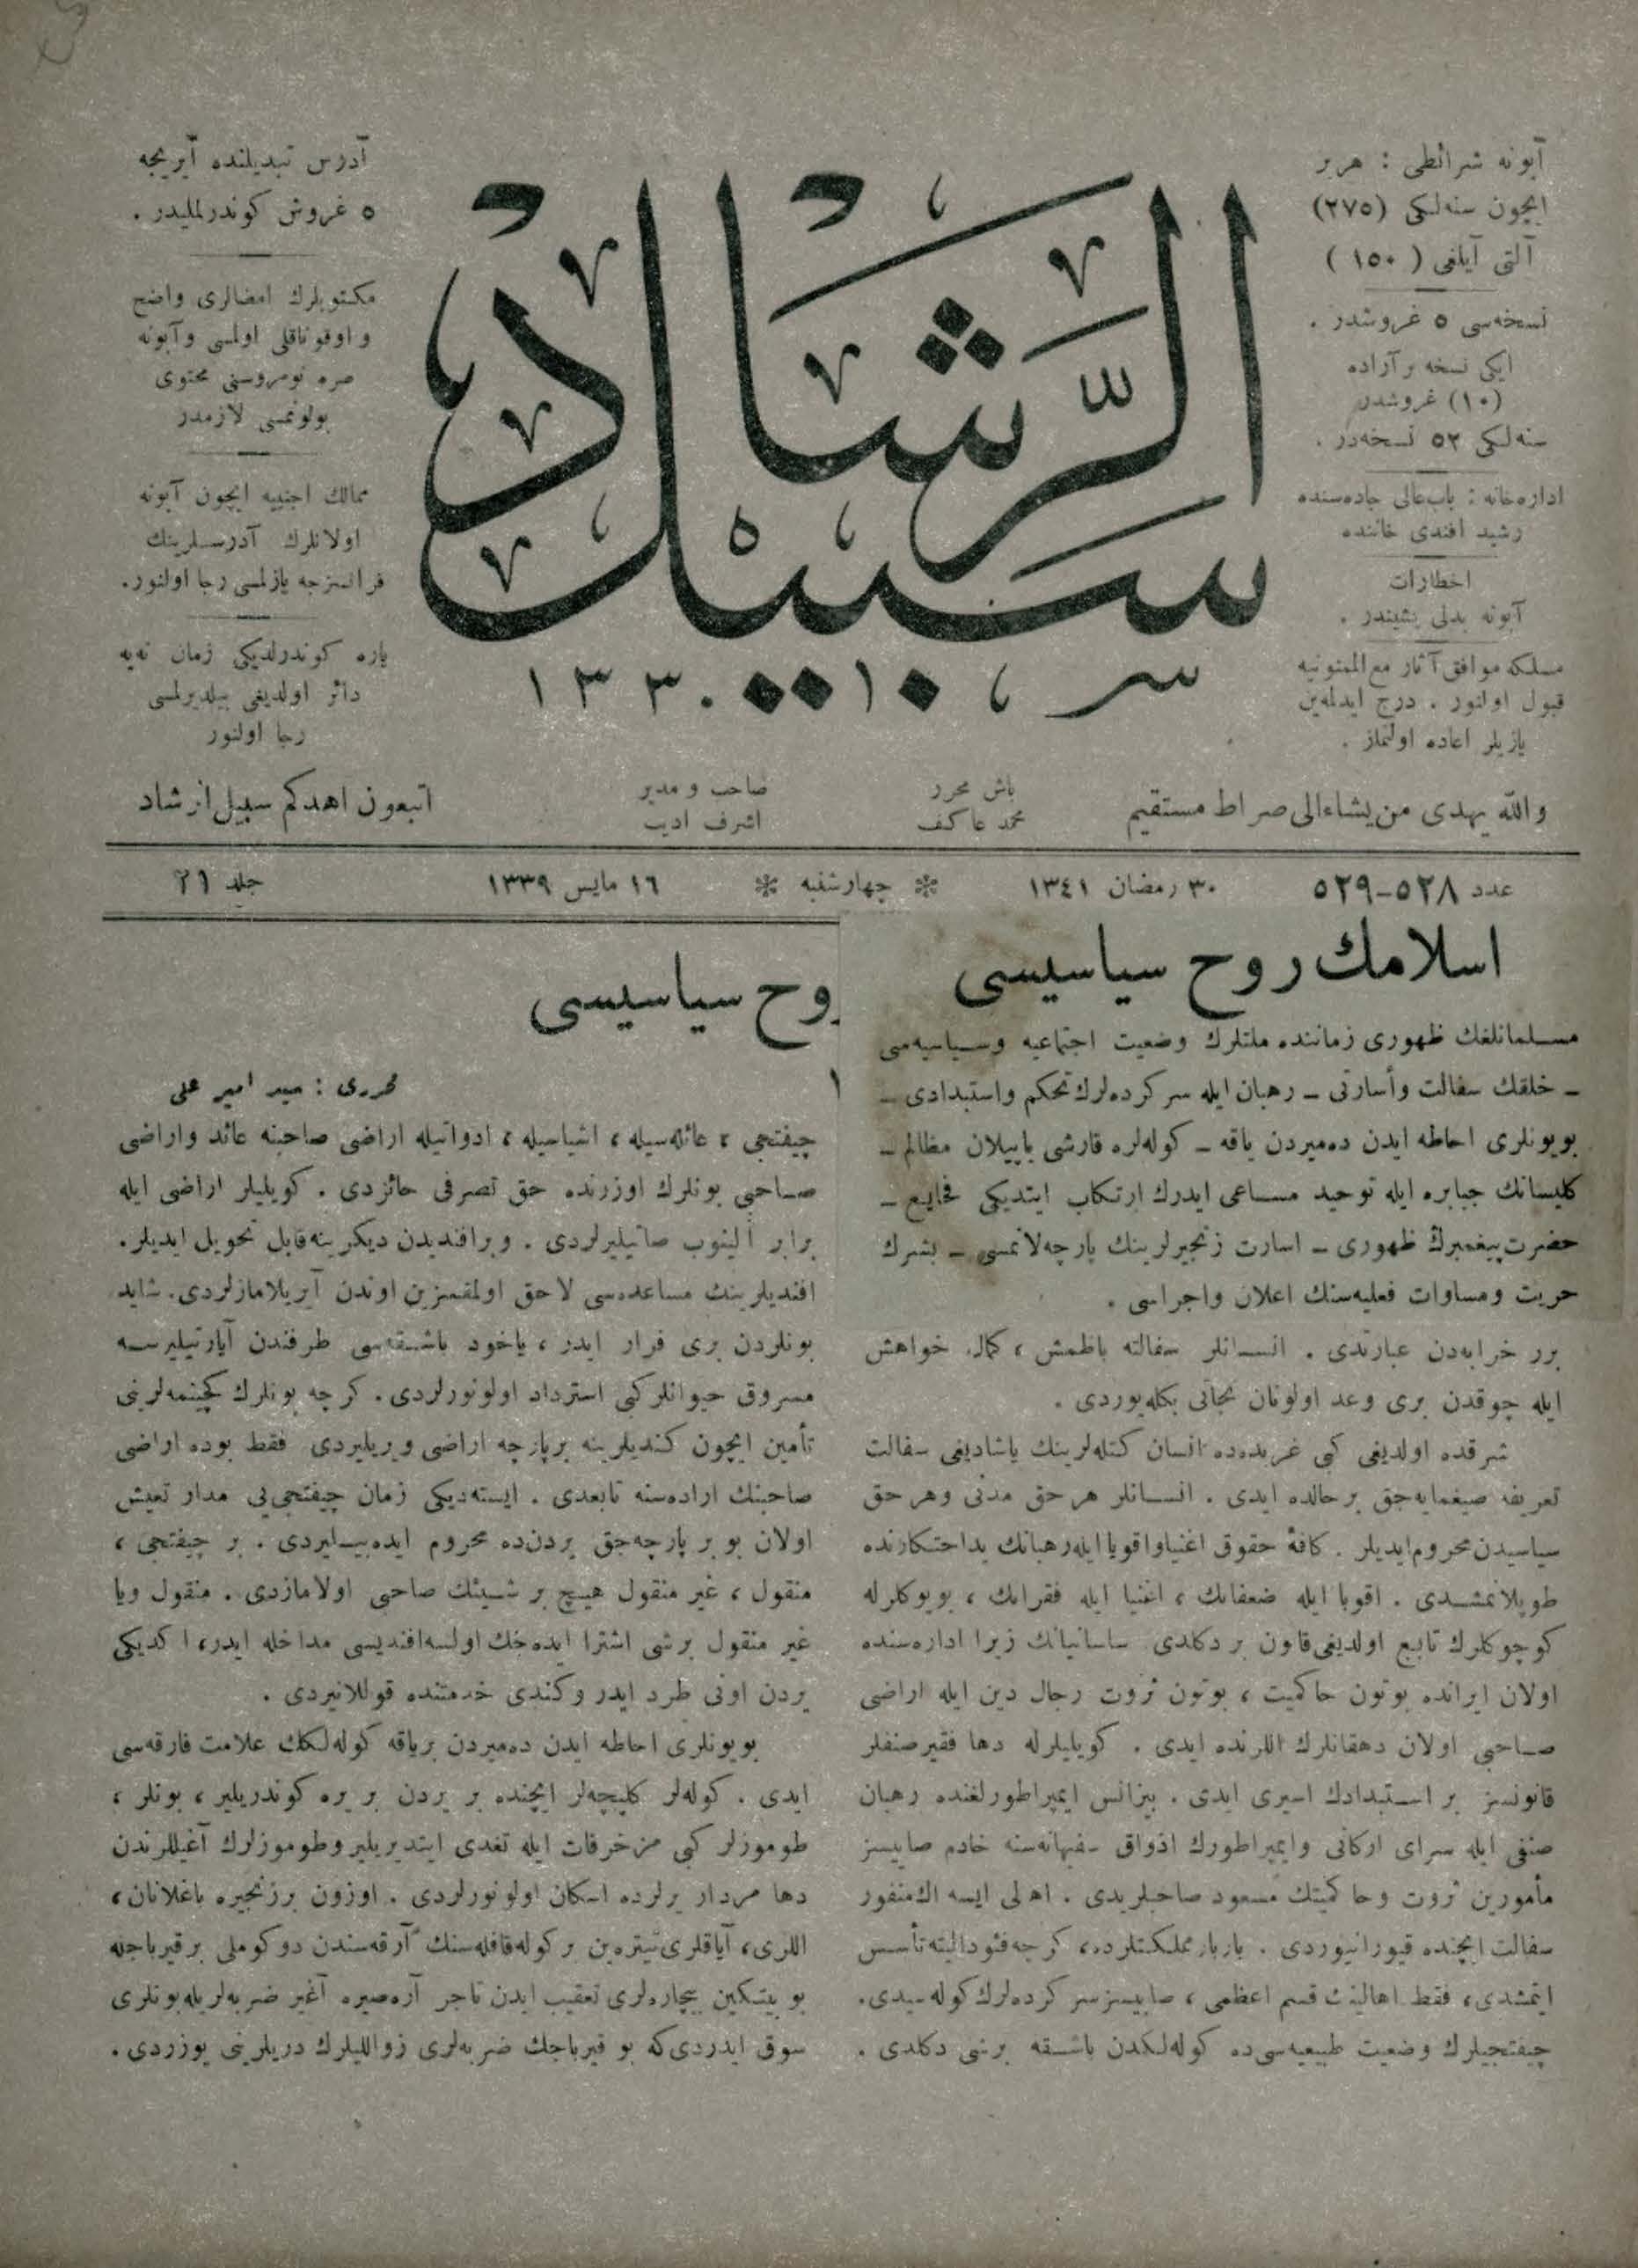 آبونه شرائطی : هر یر
ایچون سنه‌لكی (٢٧٥)
آلتی آیلغی ( ١٥٠ )
نسخه‌سی ٥ غروشدر .
ایكی نسخه بر آراده
(١٠) غروشدر
سنه‌لكی ٥٢ نسخه‌در .
اداره‌خانه : باب‌عالی جاده‌سنده
رشید افندی خاننده
اخطارات
آبونه بدلی پشیندر .
مسلكه موافق آثار مع‌الممنونیه
قبول اولنور . درج ایدلمه‌ین
یازیلر اعاده اولنماز .
سبیل الرشاد
١٣٣٠
آدرس تبدیلنده آیریجه
٥ غروش كوندرلملیدر .
مكتوبلرك امضالری واضح
و اوقوناقلی اولمسی وآبونه
صره نومروسنی محتوی
بولونمسی لازمدر
ممالك اجنبیه ایچون آبونه
اولانلرك آدرسلرینك
فرانسزجه یازلمسی رجا اولنور.
پاره كوندرلدیكی زمان نه‌یه
دائر اولدیغی بیلدیرلمسی
رجا اولنور
والله یهدی من یشاء الی صراط مستقیم
باش محرر
محمد عاكف
صاحب و مدیر
اشرف ادیب
اتبعون اهدكم سبیل الرشاد
عدد ٥٢٨-٥٢٩ ٣٠ رمضان ١٣٤١ چهارشنبه ١٦ مایس ١٣٣٩ جلد ٢١
اسلامك روح سیاسیسی
مسلمانلغك ظهوری زماننده ملتلرك وضعیت اجتماعیه وسیاسیه‌سی
ـ خلقك سفالت وأسارتی ـ رهبان ایله سركرده‌لرك تحكم واستبدادی ـ
بویونلری احاطه ایدن ده‌میردن یاقه ـ كوله‌لره قارشی یاپیلان مظالم ـ
كلیسانك جبابره ایله توحید مساعی ایدرك ارتكاب ایتدیكی فجایع ـ
حضرت پیغمبرك ظهوری ـ اسارت زنجیرلرینك پارچه‌لانمسی ـ بشرك
حریت ومساوات فعلیه‌سنك اعلان واجراسی .
برر خرابه‌دن عبارتدی . انسانلر سفالته باطمش ، كمال خواهش
ایله چوقدن بری وعد اولونان نجاتی بكله‌یوردی .
شرقده اولدیغی كبی غربده‌ده انسان كتله‌لرینك یاشادیغی سفالت
تعریفه صیغمایه‌جق بر حالده ایدی . انسانلر هر حق مدنی وهر حق
سیاسیدن محروم ایدیلر . كافۀ حقوق اغنیا واقویا ایله رهبانك ید احتكارنده
طوپلانمشدی . اقویا ایله ضعفانك ، اغنیا ایله فقرانك ، بویوكلرله
كوچوكلرك تابع اولدیغی قانون بر دكلدی ساسانیانك زیرا اداره‌سنده
اولان ایرانده بوتون حاكمیت ، بوتون ثروت رجال دین ایله اراضی
صاحبی اولان دهقانلرك اللرنده ایدی . كویلیلرله دها فقیر صنفلر
قانونسز بر استبدادك اسیری ایدی . بیزانس ایمپراطورلغنده رهبان
صنفی ایله سرای اركانی وایمپراطورك اذواق سفیهانه‌سنه خادم صاییسز
مأمورین ثروت وحاكمیتك مسعود صاحبلریدی . اهالی ایسه اك منفور
سفالت ایچنده قیورانیوردی . باربار مملكتلرده، كرچه فئودالیته تأسس
ایتمشدی، فقط اهالینك قسم اعظمی ، صاییسز سركرده‌لرك كوله‌سیدی.
چیفتجیلرك وضعیت طبیعیه‌سی‌ده كوله‌لكدن باشقه برشی دكلدی .
وح سیاسیسی
١
محرری : سید امیر علی
چیفتجی ، عائله‌سیله ، اشیاسیله ، ادواتیله اراضی صاحبنه عائد واراضی
صاحبی بونلرك اوزرنده حق تصرفی حائزدی . كویلیلر اراضی ایله
برابر آلینوب صاتیلیرلردی . وبر افندیدن دیكرینه قابل تحویل ایدیلر.
افندیلرینك مساعده‌سی لاحق اولمقسزین اوندن آیریلامازلردی. شاید
بونلردن بری فرار ایدر ، یاخود باشقه‌سی طرفندن آیارتیلیرسه
مسروق حیوانلر كبی استرداد اولونورلردی. كرچه بونلرك كچینمه‌لرینی
تأمین ایچون كندیلرینه بر پارچه اراضی ویریلیردی فقط بوده اراضی
صاحبنك اراده‌سنه تابعدی . ایسته‌دیكی زمان چیفتجی‌یی مدار تعیش
اولان بو بر پارچه‌جق یردن‌ده محروم ایده‌بیلیردی . بر چیفتجی ،
منقول ، غیر منقول هیچ بر شیئك صاحبی اولامازدی . منقول ویا
غیر منقول برشی اشترا ایده‌جك اولسه افندیسی مداخله ایدر، اكدیكی
یردن اونی طرد ایدر وكندی خدمتنده قوللانیردی .
بویونلری احاطه ایدن ده‌میردن بریاقه كوله‌لكك علامت فارقه‌سی
ایدی . كوله‌لر كلپچه‌لر ایچنده بر یردن بر یره كوندریلیر ، بونلر ،
طوموزلر كبی مزخرفات ایله تغدی ایتدیریلیر وطوموزلرك آغیللرندن
دها مردار یرلرده اسكان اولونورلردی . اوزون برزنجیره باغلانان،
اللری، آیاقلری تیتره‌ین بر كوله قافله‌سنك آرقه‌سندن دوكوملی بر قیرباجله
بو بیتكین بیچاره‌لری تعقیب ایدن تاجر آره‌صیره آغیر ضربه‌لریله بونلری
سوق ایدردی‌كه بو قیرباجك ضربه‌لری زواللیلرك دریلرینی یوزردی.